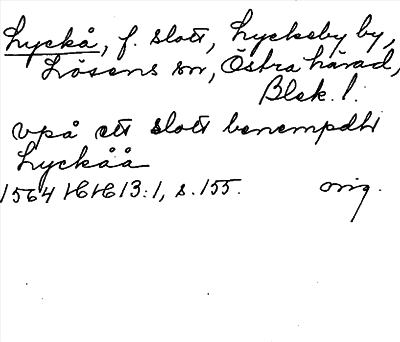 Lyckå, f. slott, Lyckeby by,
Lösens sn, Östra härad,
Blek. l.
vpå ett slott benempdtt
Lyckåå
1564 HH 13:1, s. 155. orig.